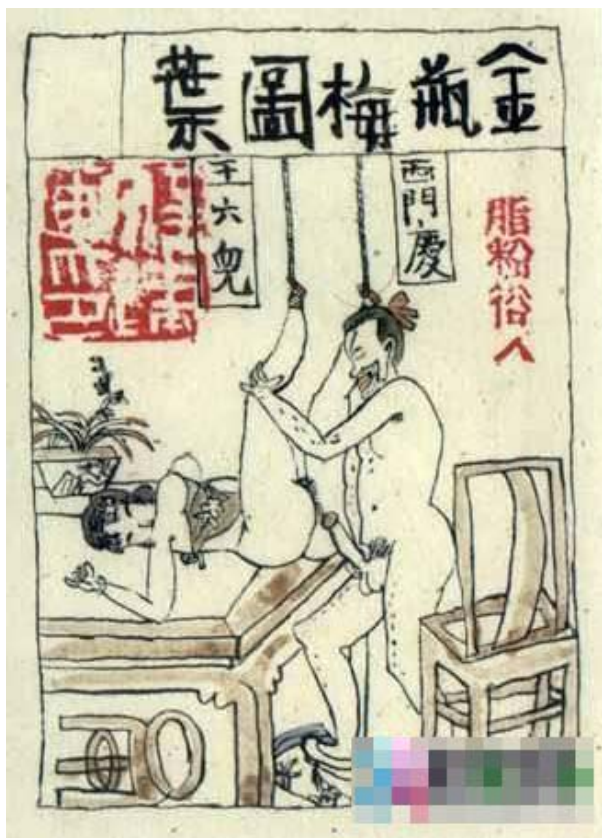 金瓶梅圖葉
西門慶
王六兒
脂粉俗人